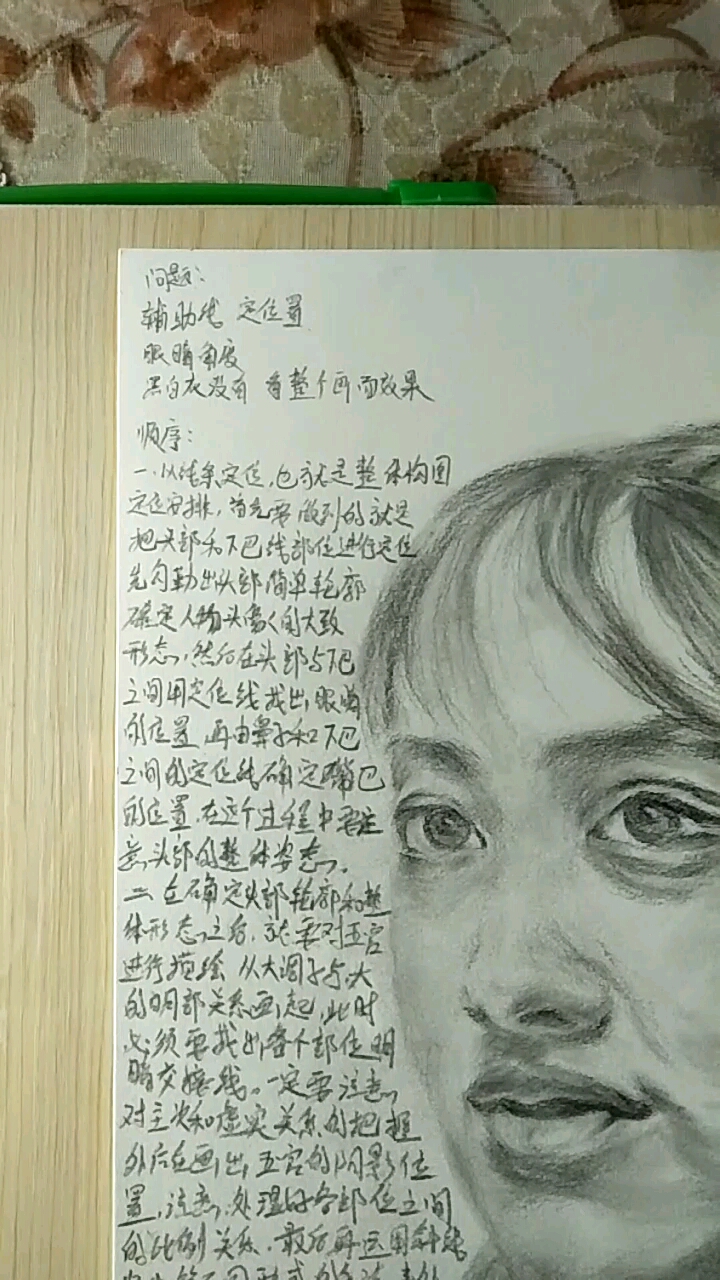 问题:
辅助线 定位置
眼睛角度
黑白灰没有 看整个画面效果
顺序:
一.从线条定位,也就是整体构图
定位安排,首先要做到的就是
把头部和下巴线部位进行定位
先勾勒出头部简单轮廓
确定人物头像的大致
形态,然后在头部与下巴
之间用定位线找出眼睛
的位置,再由鼻子和下巴
之间的定位线确定嘴巴
的位置,在这个过程中要注
意头部的整体姿态。
二 在确定头部轮廓和整
体形态之后,就要对五官
进行描绘 从大调子与大
的明部关系画起,此时
必须要找出各个部位明
暗交接线。一定要注意
对主次和虚实关系的把握
外后在画出五官的阴影位
置,注意处理好各部位之间
的比例关系,最后再运用斜线